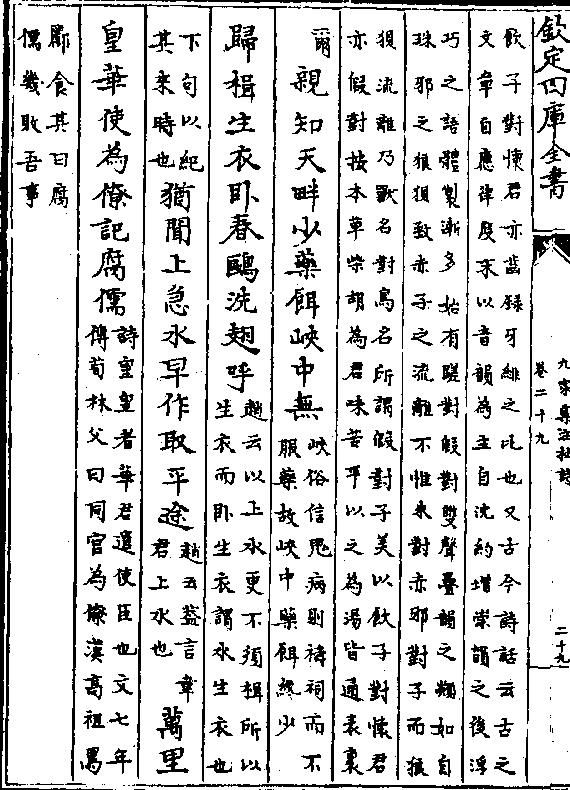 欽定四庫全書
九家集注杜詩
卷二十九
二十九
飲子對懷君亦齒錄牙緋之比也又古今詩話云古之
文章自應律度未以音韻為主自沈約增崇韻之後浮
巧之語體製漸多始有蹉對假對雙聲疊韻之類如自
珠邪之狼狽致赤子之流離不惟朱對赤邪對子而狼
狽流離乃獸名對鳥名所謂假對子美以飲子對懷君
亦假對按本草柴胡為君味苦平以之為湯皆通表裏
爾
親知天畔少藥餌峽中無
峽俗信鬼病則禱祠而不
服藥故峽中藥餌終少
歸楫生衣卧春鷗洗翅呼
趙云以上水更不須楫所以
生衣而卧生衣謂水生衣也
下句以紀
其来時也
猶聞上急水早作取平途
趙云蓋言韋
君上水也
萬里
皇華使為僚記腐儒
詩皇皇者華君遣使臣也文七年
傳荀林父曰同官為僚漢高祖罵
酈食其曰腐
儒幾敗吾事